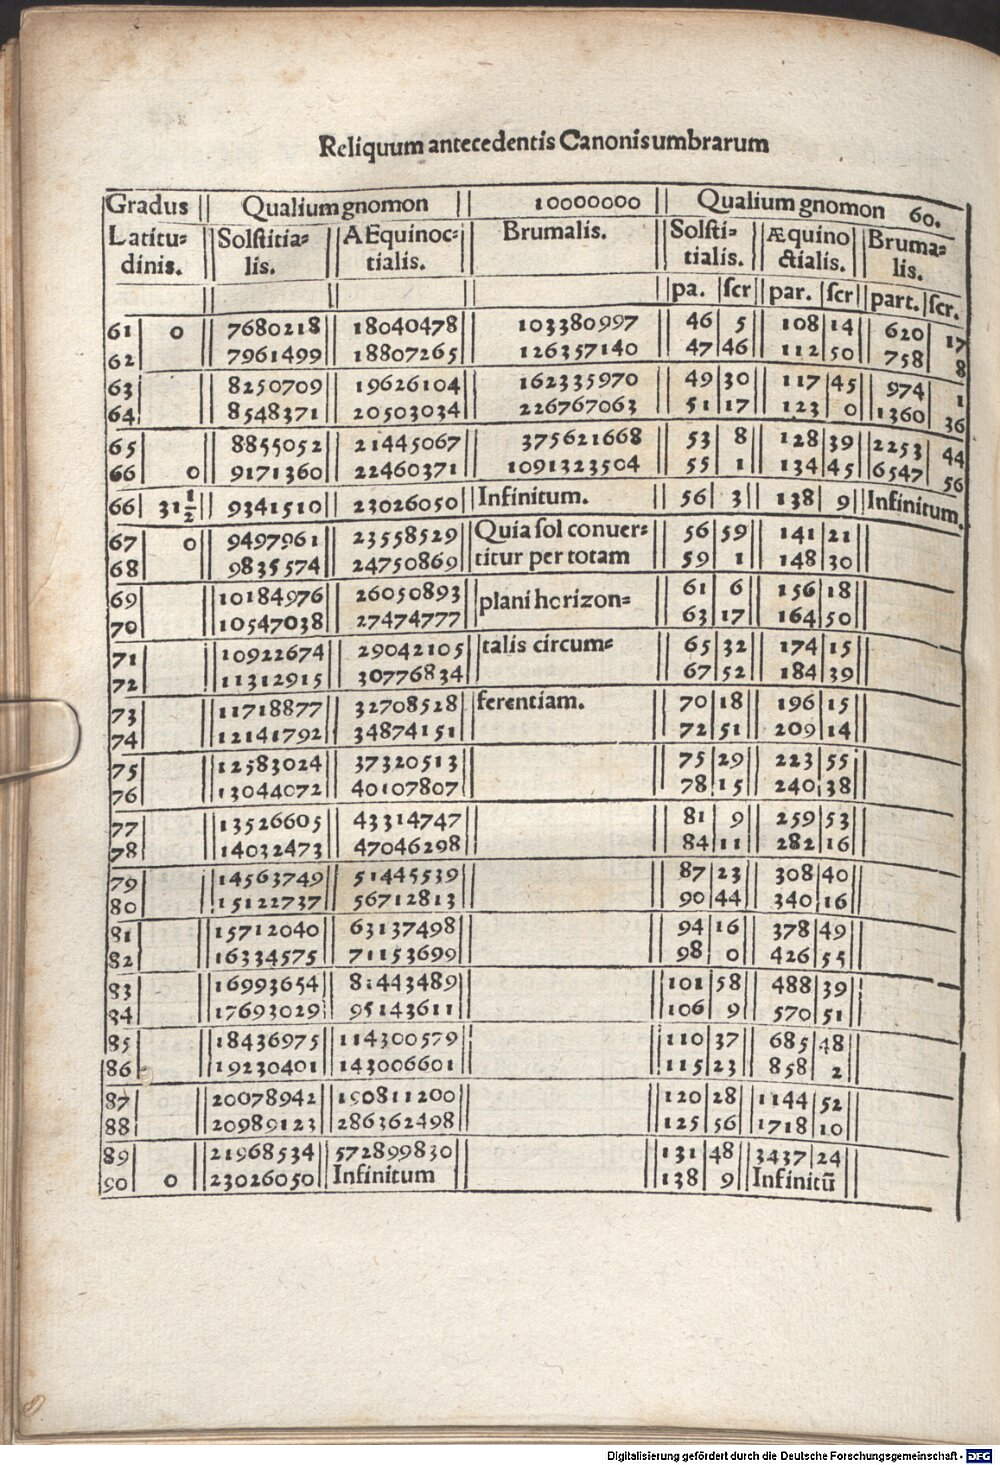 Reliquum antecedentis Canonis umbrarum
Gradus || Qualium gnomon || 10000000 || Qualium gnomon 60.
Latitu= || Solstitia= || AEquinoc= || Brumalis. || Solsti= || Æquino || Bruma=
dinis. || lis. || tialis. || || tialis. || ctialis. || lis.
pa. | scr || par. | scr || part. | scr.
61 | 0 || 7680218 || 18040478 || 103380997 || 46 | 5 || 108 | 14 || 620 | 17
62 | || 7961499 || 18807265 || 126357140 || 47 | 46 || 112 | 50 || 758 | 8
63 | || 8250709 || 19626104 || 162335970 || 49 | 30 || 117 | 45 || 974 | 1
64 | || 8548371 || 20503034 || 226767063 || 51 | 17 || 123 | 0 || 1360 | 36
65 | || 8855052 || 21445067 || 375621668 || 53 | 8 || 128 | 39 || 2253 | 44
66 | 0 || 9171360 || 22460371 || 1091323504 || 55 | 1 || 134 | 45 || 6547 | 56
66 | 31 1/2 || 9341510 || 23026050 || Infinitum. || 56 | 3 || 138 | 9 || Infinitum.
67 | 0 || 9497961 || 23558529 || Quia sol conuer= || 56 | 59 || 141 | 21 ||
68 | || 9835574 || 24750869 || titur per totam || 59 | 1 || 148 | 30 ||
69 | || 10184976 || 26050893 || plani horizon= || 61 | 6 || 156 | 18 ||
70 | || 10547038 || 27474777 || || 63 | 17 || 164 | 50 ||
71 | || 10922674 || 29042105 || talis circum= || 65 | 32 || 174 | 15 ||
72 | || 11312915 || 30776834 || || 67 | 52 || 184 | 39 ||
73 | || 11718877 || 32708528 || ferentiam. || 70 | 18 || 196 | 15 ||
74 | || 12141792 || 34874151 || || 72 | 51 || 209 | 14 ||
75 | || 12583024 || 37320513 || || 75 | 29 || 223 | 55 ||
76 | || 13044072 || 40107807 || || 78 | 15 || 240 | 38 ||
77 | || 13526605 || 43314747 || || 81 | 9 || 259 | 53 ||
78 | || 14032473 || 47046298 || || 84 | 11 || 282 | 16 ||
79 | || 14563749 || 51445539 || || 87 | 23 || 308 | 40 ||
80 | || 15122737 || 56712813 || || 90 | 44 || 340 | 16 ||
81 | || 15712040 || 63137498 || || 94 | 16 || 378 | 49 ||
82 | || 16334575 || 71153699 || || 98 | 0 || 426 | 55 ||
83 | || 16993654 || 81443489 || || 101 | 58 || 488 | 39 ||
84 | || 17693029 || 95143611 || || 106 | 9 || 570 | 51 ||
85 | || 18436975 || 114300579 || || 110 | 37 || 685 | 48 ||
86 | || 19230401 || 143006601 || || 115 | 23 || 858 | 2 ||
87 | || 20078942 || 190811200 || || 120 | 28 || 1144 | 52 ||
88 | || 20989123 || 286362498 || || 125 | 56 || 1718 | 10 ||
89 | || 21968534 || 572899830 || || 131 | 48 || 3437 | 24 ||
90 | 0 || 23026050 || Infinitum || || 138 | 9 || Infinitū ||
Digitalisierung gefördert durch die Deutsche Forschungsgemeinschaft - DFG